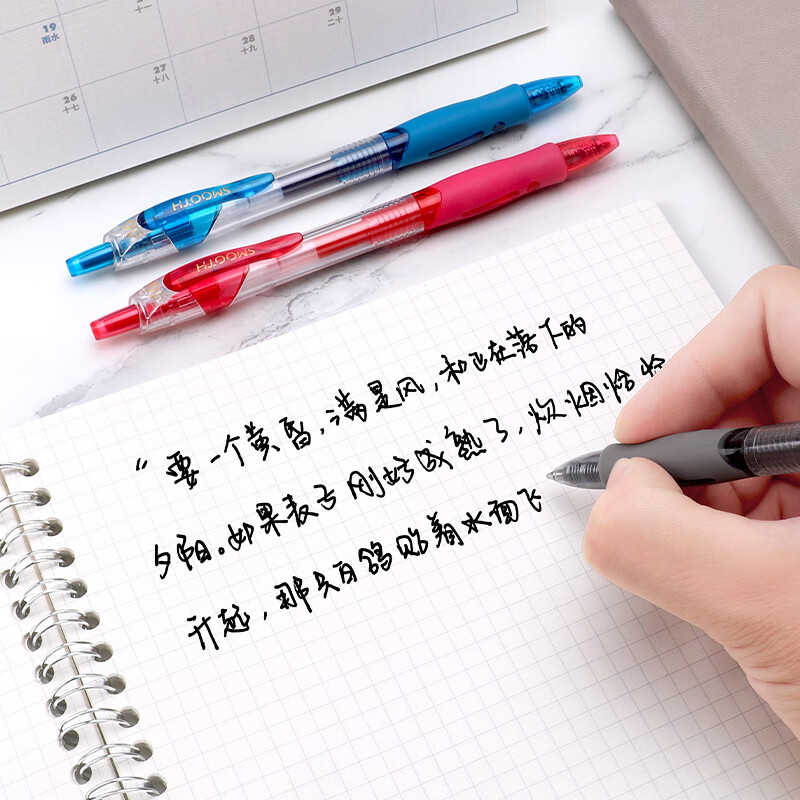 19
雨水
29
二十
28
十九
27
十八
26
十七
SMOOTH
SMOOTH
“要一个黄昏，满是风，和正在落下的
夕阳。如果麦子刚好成熟了，炊烟恰恰
升起，那只白鸽贴着水面飞